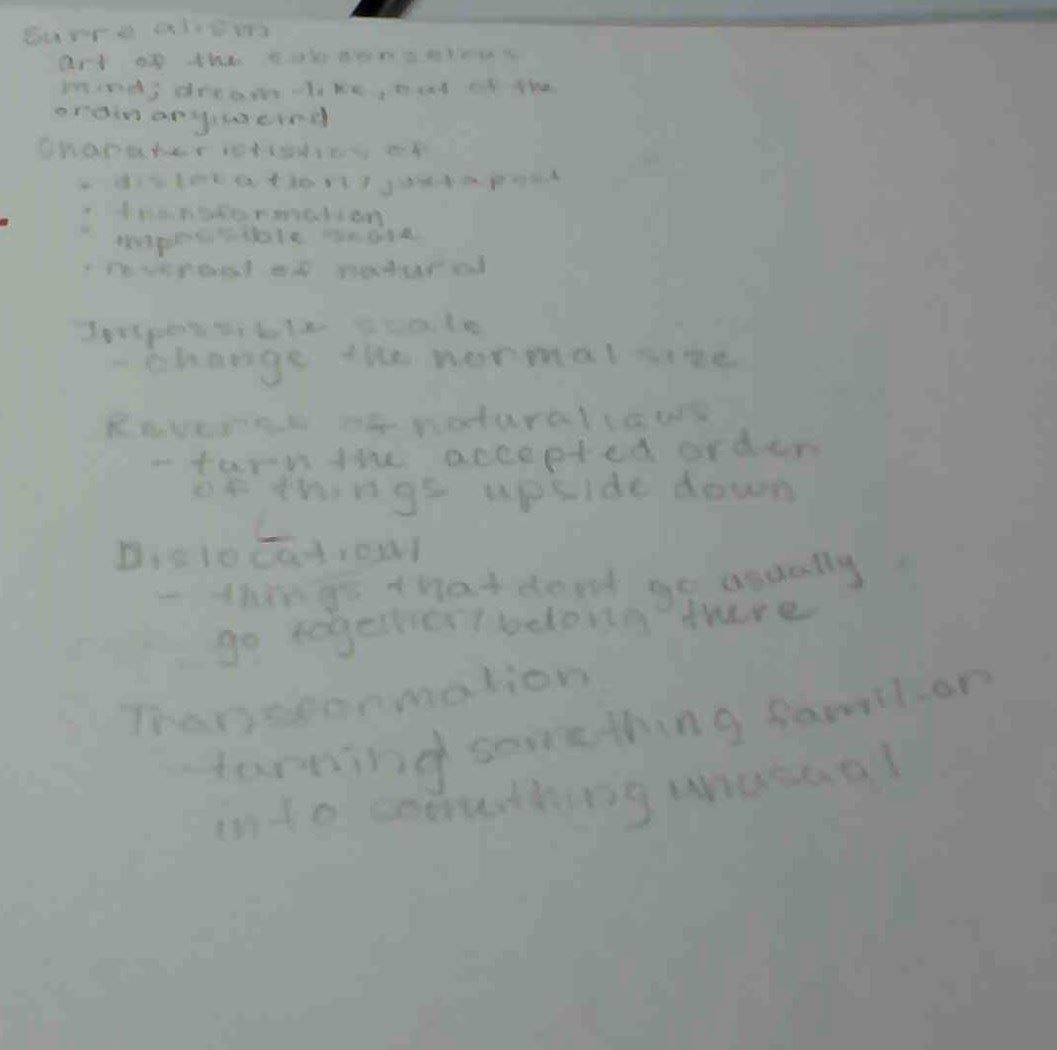 Surrealism
art of the subconscious
mind; dream-like, out of the
ordinary, weird
Charaterististics of
• dislocation / juxtapost
• transformation
• impossible scale
• reversal of natural
Impossible scale
- change the normal size
Reverse of natural laws
- turn the accepted order
of things upside down
Dislocation/
- things that dont go usually
go together/belong there
Transformation
- turning something familiar
into something unusual